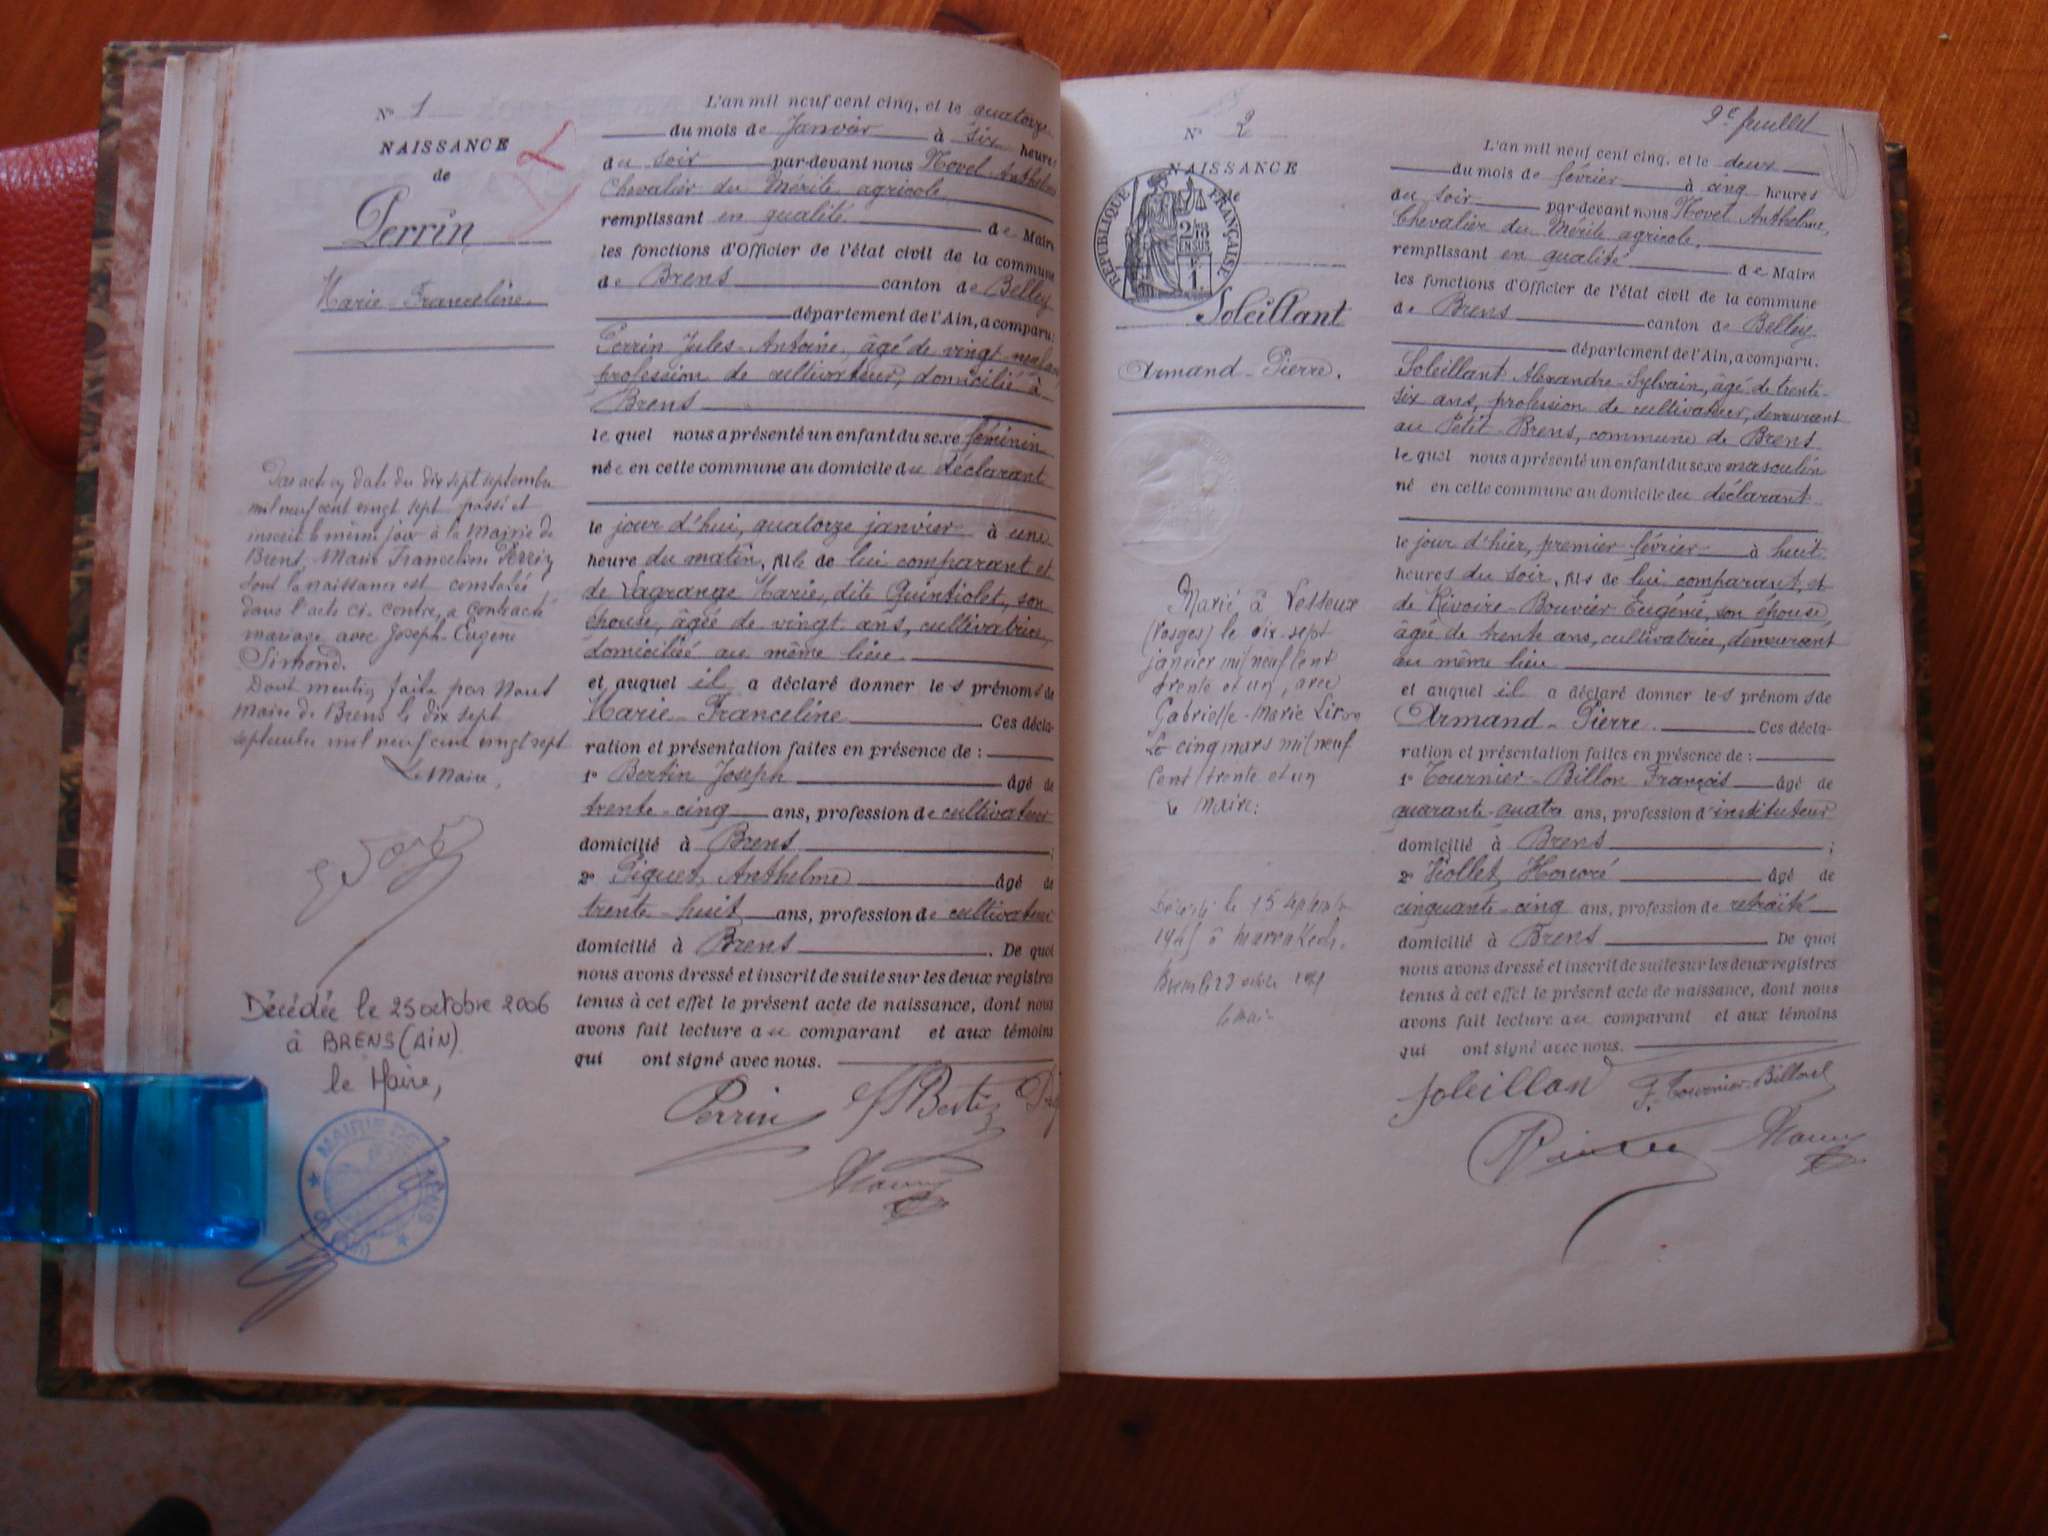 N° 1
NAISSANCE
de
Perrin
Marie-Franceline
Par acte en date du dix sept septembre
mil neuf cent vingt sept passé et
inscrit le même jour à la Mairie de
Brens, Marie Franceline Perrin
dont la naissance est constatée
dans l'acte ci-contre, a contracté
mariage avec Joseph Eugène
Simond.
Dont mention faite par Nous
Maire de Brens le dix sept
septembre mil neuf cent vingt sept
Le Maire,
Décédée le 25 octobre 2006
à BRENS (AIN)
le Maire,
MAIRIE DE BRENS
L'an mil neuf cent cinq, et le quatorze
du mois de Janvier à six heures
du soir par-devant nous Novel Anthelme
Chevalier du Mérite agricole
remplissant en qualité de Maire
les fonctions d'Officier de l'état civil de la commune
de Brens canton de Belley
département de l'Ain, a comparu:
Perrin Jules-Antoine, âgé de vingt-neuf ans
profession de cultivateur, domicilié à
Brens
lequel nous a présenté un enfant du sexe féminin
née en cette commune au domicile du déclarant
le jour d'hui, quatorze janvier à une
heure du matin, fille de lui comparant et
de Lagrange Marie, dite Quintiolet, son
épouse, âgée de vingt ans, cultivatrice,
domiciliée au même lieu
et auquel il a déclaré donner les prénoms de
Marie-Franceline Ces décla-
ration et présentation faites en présence de :
1° Bertin Joseph âgé de
trente-cinq ans, profession de cultivateur
domicilié à Brens ;
2° Piquet Anthelme âgé de
trente-huit ans, profession de cultivateur
domicilié à Brens . De quoi
nous avons dressé et inscrit de suite sur les deux registres
tenus à cet effet le présent acte de naissance, dont nous
avons fait lecture au comparant et aux témoins
qui ont signé avec nous.
Perrin J Bertin
2e feuillet
N° 2
NAISSANCE
de
RÉPUBLIQUE FRANÇAISE
2/10 EN SUS
1
Soleillant
Armand-Pierre.
Marié à Lesseux
(Vosges) le dix-sept
janvier mil neuf cent
trente et un, avec
Gabrielle-Marie
Le cinq mars mil neuf
cent trente et un
Le Maire:
Décédé le 15
à Marrakech.
Brens le
le maire
L'an mil neuf cent cinq, et le deux
du mois de février à cinq heures
du soir par-devant nous Novel Anthelme,
Chevalier du Mérite agricole,
remplissant en qualité de Maire
les fonctions d'Officier de l'état civil de la commune
de Brens canton de Belley
département de l'Ain, a comparu:
Soleillant Alexandre-Sylvain, âgé de trente-
six ans, profession de cultivateur, demeurant
au Petit-Brens, commune de Brens
lequel nous a présenté un enfant du sexe masculin
né en cette commune au domicile du déclarant
le jour d'hier, premier février à huit
heures du soir, fils de lui comparant, et
de Rivoire-Bouvier Eugénie, son épouse,
âgée de trente ans, cultivatrice, demeurant
au même lieu
et auquel il a déclaré donner les prénoms de
Armand-Pierre. Ces décla-
ration et présentation faites en présence de :
1° Tournier-Billon François âgé de
quarante-quatre ans, profession d'instituteur
domicilié à Brens ;
2° Viollet Honoré âgé de
cinquante-cinq ans, profession de retraité
domicilié à Brens De quoi
nous avons dressé et inscrit de suite sur les deux registres
tenus à cet effet le présent acte de naissance, dont nous
avons fait lecture au comparant et aux témoins
qui ont signé avec nous.
Soleillant F. Tournier-Billon